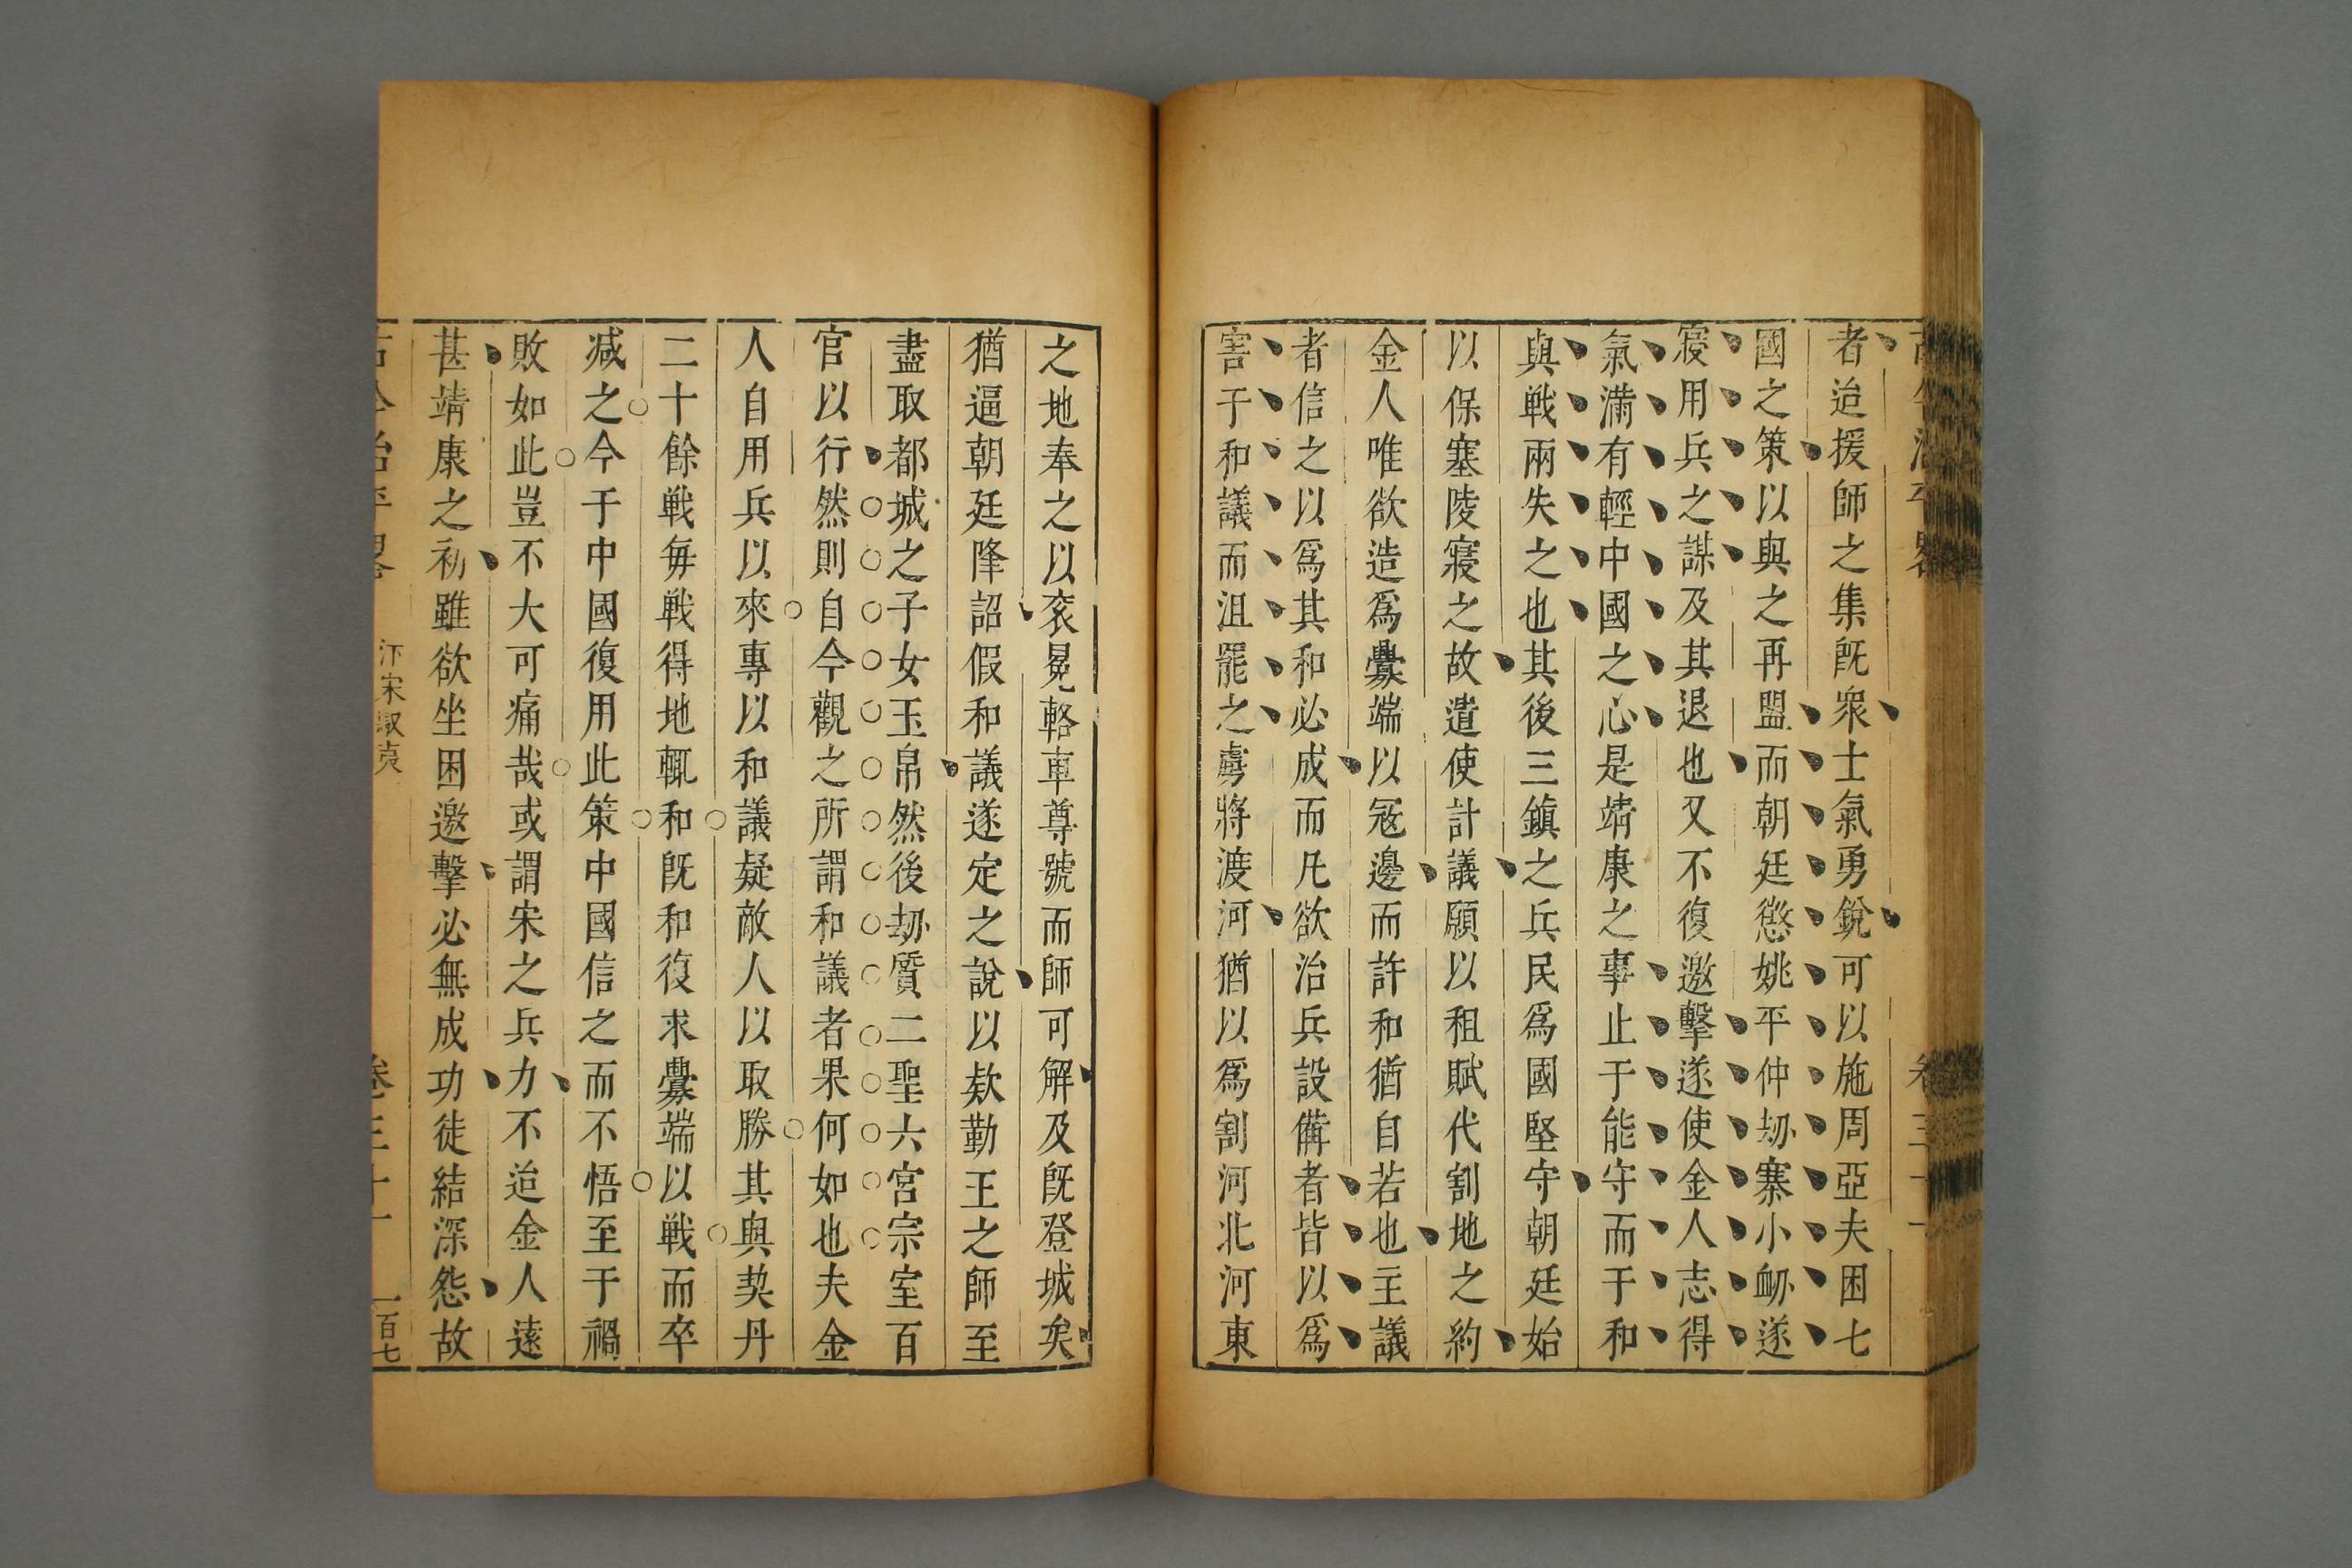 古今治平畧 卷三十一
者迨援師之集旣衆士氣勇銳可以施周亞夫困七
國之策以與之再盟而朝廷懲姚平仲刼寨小衂遂
寢用兵之謀及其退也又不復邀擊遂使金人志得
氣滿有輕中國之心是靖康之事止于能守而于和
與戰兩失之也其後三鎮之兵民爲國堅守朝廷始
以保塞陵寢之故遣使計議願以租賦代割地之約
金人唯欲造爲釁端以冦邊而許和猶自若也主議
者信之以爲其和必成而凡欲治兵設備者皆以爲
害于和議而沮罷之虜將渡河猶以爲割河北河東
之地奉之以衮冕輅車尊號而師可解及旣登城矣
猶逼朝廷降詔假和議遂定之說以欵勤王之師至
盡取都城之子女玉帛然後刼質二聖六宮宗室百
官以行然則自今觀之所謂和議者果何如也夫金
人自用兵以來專以和議疑敵人以取勝其與契丹
二十餘戰每戰得地輒和旣和復求釁端以戰而卒
滅之今于中國復用此策中國信之而不悟至于禍
敗如此豈不大可痛哉或謂宋之兵力不迨金人遠
甚靖康之初雖欲坐困邀擊必無成功徒結深怨故
古今治平畧 汴宋馭夷 卷三十一 一百七